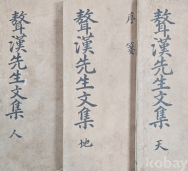 聱漢先生文集 天
序 箋
聱漢先生文集 地
聱漢先生文集 人
kobay